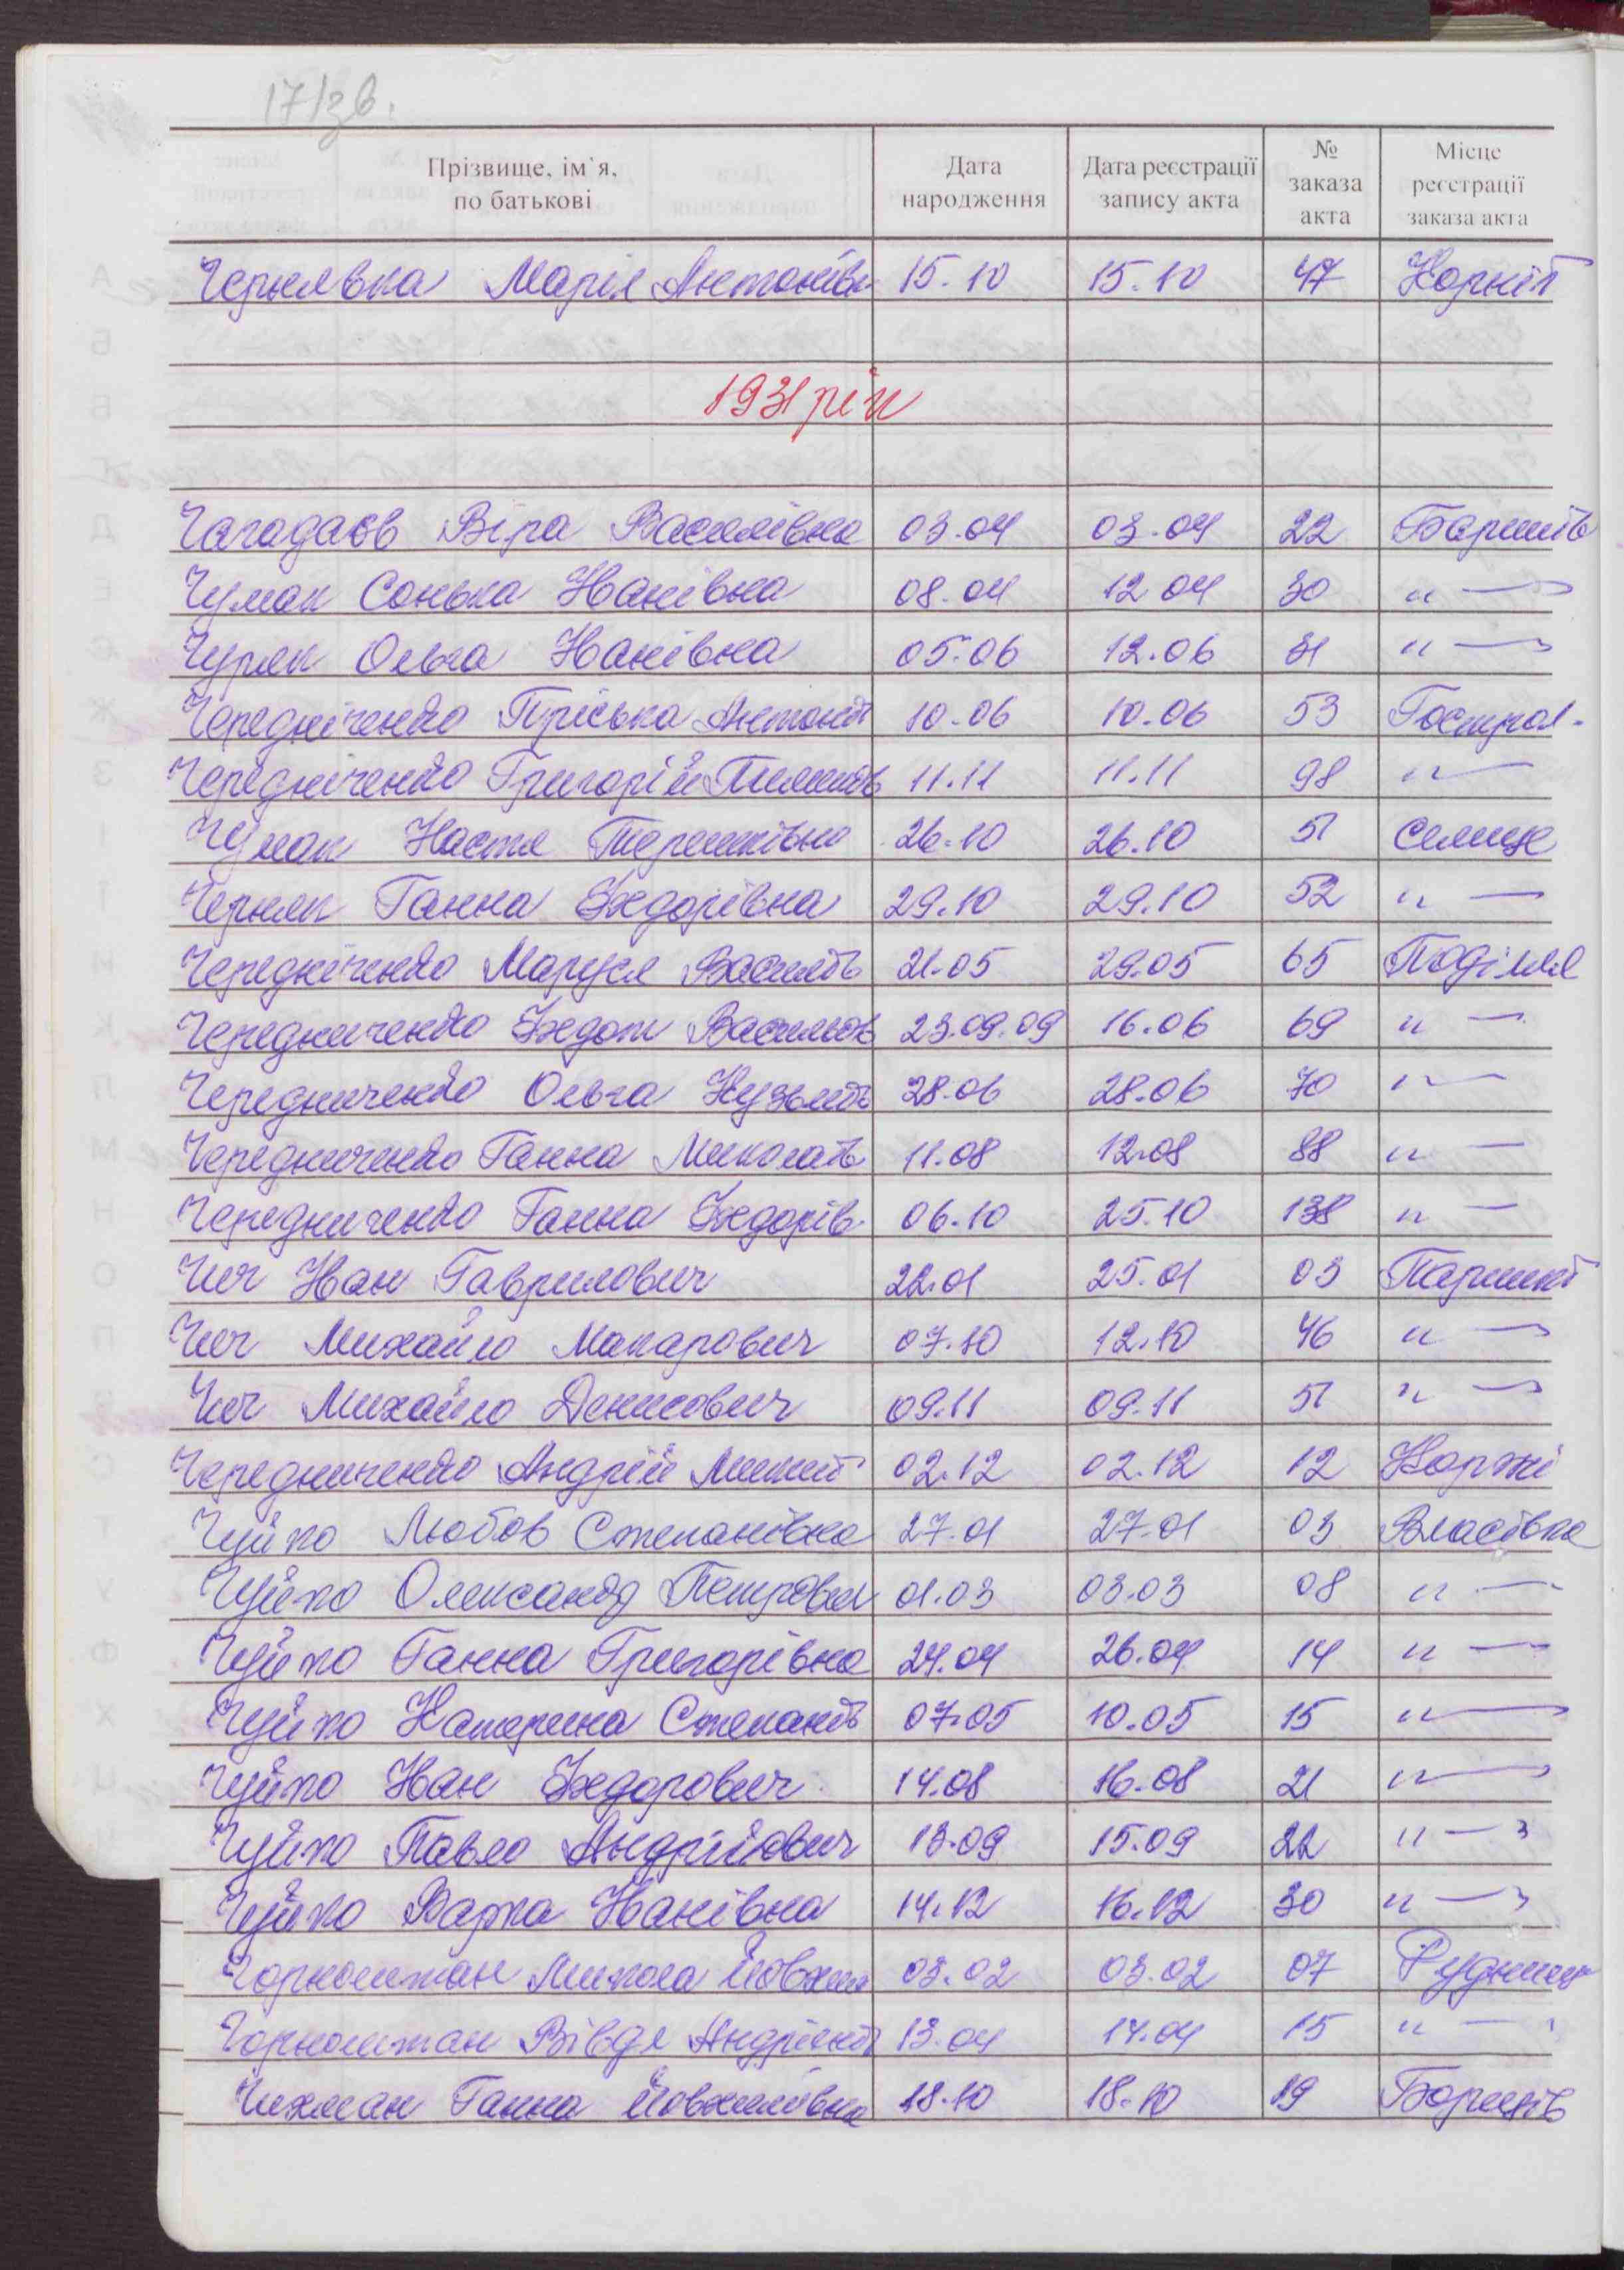 17/зв.
Прізвище, ім`я, по батькові | Дата народження | Дата реєстрації запису акта | № заказа акта | Місце реєстрації заказа акта
Чернявка Марія Антонівн 15.10 15.10 47 Корніт
1931 рік
Чагадаєв Віра Василівна 03.04 03.04 22 Баришів
Чумак Сонька Іванівна 08.04 12.04 30 " —
Чуряк Ольга Іванівна 05.06 12.06 31 " —
Чередніченко Пріська Антонів 10.06 10.06 53 Гострол.
Чередніченко Григорій 11.11 11.11 98 " —
Чумак Настя Терешківна 26.10 26.10 51 Селище
Черняк Ганна Федорівна 29.10 29.10 52 " —
Чередніченко Маруся Василів 21.05 29.05 65 Поділля
Чередниченко Федот Васильов 23.09.09 16.06 69 " —
Чередниченко Ольга Кузьмів 28.06 28.06 70 " —
Чередниченко Ганна Миколаїв 11.08 12.08 88 " —
Чередниченко Ганна Федорів. 06.10 25.10 138 " —
Чич Іван Гаврилович 22.01 25.01 03 Паришкі
Чич Михайло Макарович 07.10 12.10 46 " —
Чич Михайло Денисович 09.11 09.11 51 " —
Чередниченко Андрій Микит 02.12 02.12 12 Коржі
Чуйко Любов Степанівна 27.01 27.01 03 Власівка
Чуйко Олександр Петрович 01.03 03.03 08 " —
Чуйко Ганна Григорівна 24.04 26.04 14 " —
Чуйко Катерина Степанів 07.05 10.05 15 " —
Чуйко Іван Федорович 14.08 16.08 21 " —
Чуйко Павло Андрійович 13.09 15.09 22 " —
Чуйко Варка Іванівна 14.12 16.12 30 " —
Чорноштан Микола Йовхим 03.02 03.02 07 Рудниц
Чорноштан Вівдя Андріянів 13.04 14.04 15 " —
Чихман Ганна Йовхимівна 18.10 18.10 19 Борщів